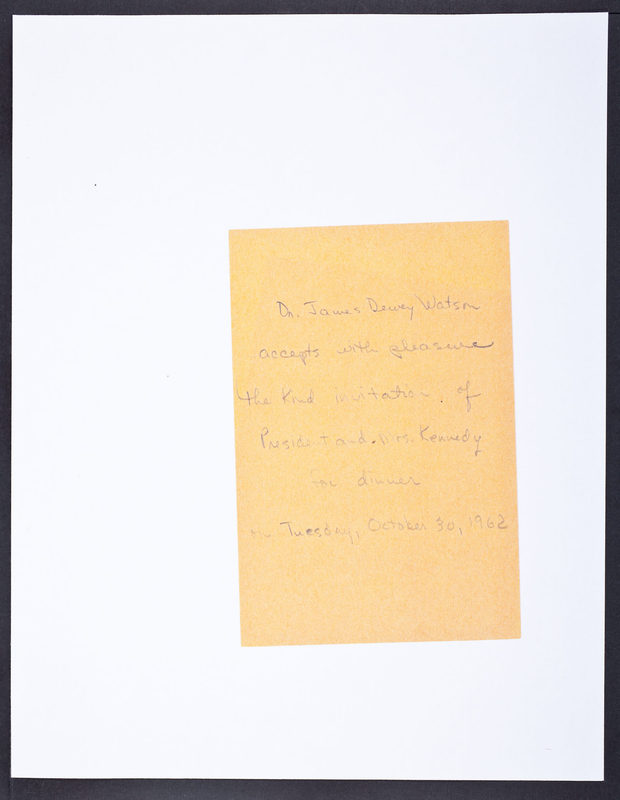 Dr. James Dewey Watson
accepts with pleasure
the kind invitation of
President and Mrs. Kennedy
for dinner
on Tuesday, October 30, 1962